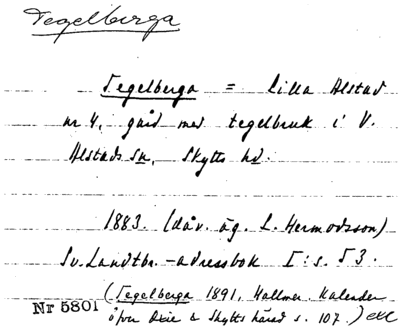 Tegelberga
Tegelberga = Lilla Alstad
nr 4, gård med tegelbruk i V.
Alstads sn, Skytts hd.
1883. (dåv. äg. L. Hermodsson)
Sv. Landtbr.-adressbok I: s. 53.
(Tegelberga 1891, Hallmer. Kalender
över Oxie & Skytts härad s. 107.)
Nr 5801